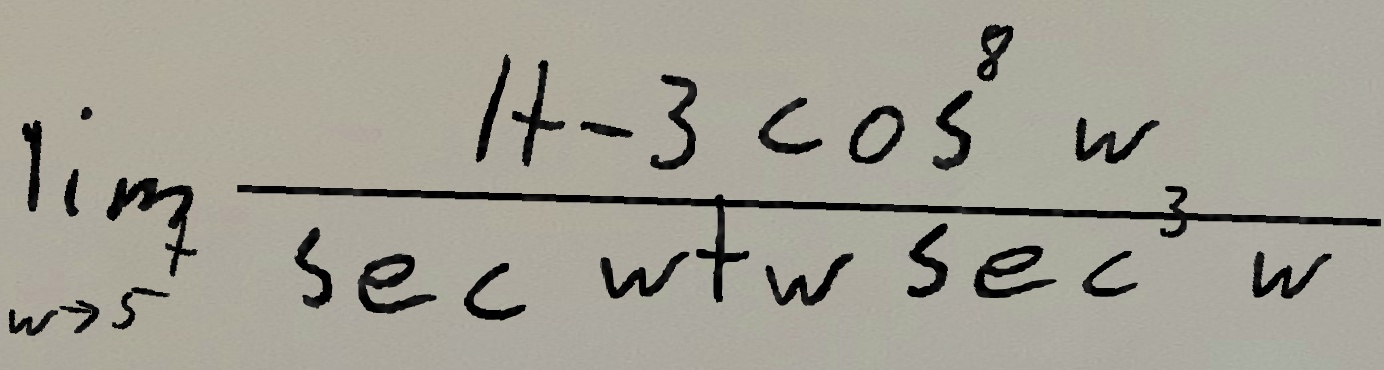 \lim_{w \to 5^+} \frac{1+-3\cos^8 w}{\sec w + w \sec^3 w}